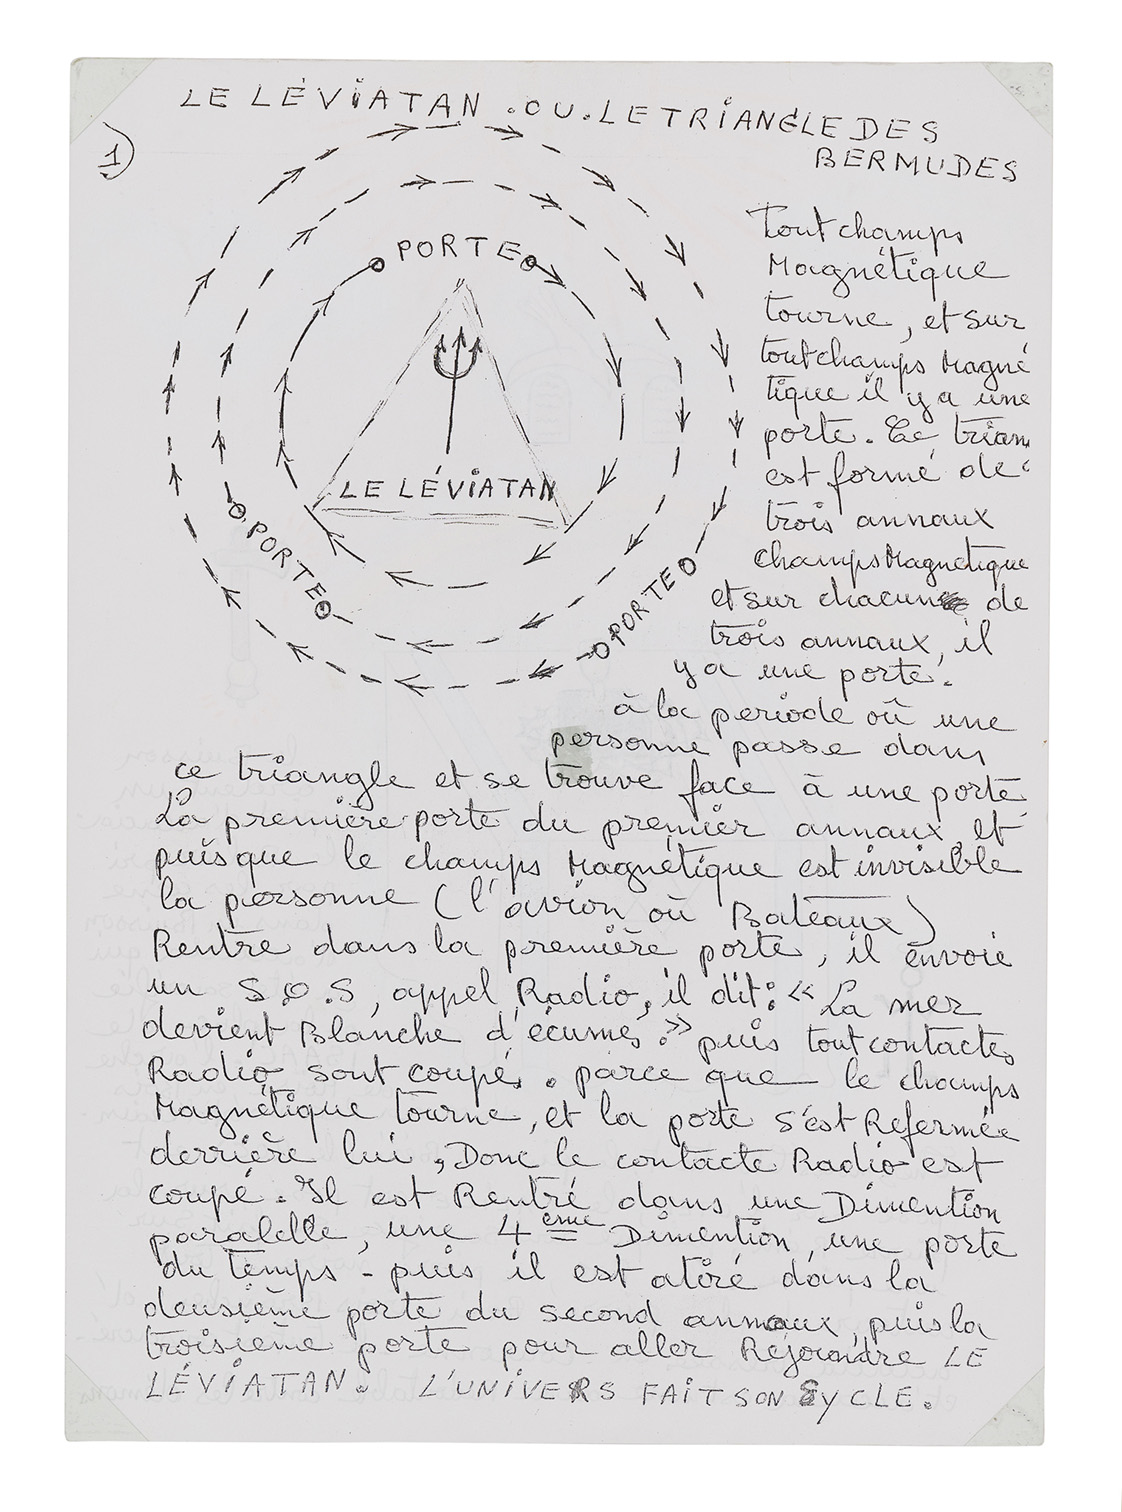 LE LÉViATAN . OU . LE TRiANGLE DES
BERMUDES
1)
PORTE
LE LÉViATAN
PORTE
PORTE
Tout champs
Magnétique
tourne, et sur
tout champs Magné
tique il y a une
porte. Ce trian
est formé de
trois annaux
champs Magnetique
et sur chacun de
trois annaux, il
y a une porte.
à la periode où une
personne passe dans
ce triangle et se trouve face à une porte
La première porte du premier annaux, et
puisque le champs Magnétique est invisible
la personne (l'avion où Bateaux)
Rentre dans la première porte, il envoie
un S.O.S, appel Radio, il dit: « La mer
devient Blanche d'écumes. » puis tout contactes
Radio sont coupés. parce que le champs
Magnétique tourne, et la porte s'est Refermée
derrière lui, Donc le contacte Radio est
coupé. Il est Rentré dans une Dimention
paralelle, une 4ème Dimention, une porte
du temps - puis il est atiré dans la
deusième porte du second annaux, puis la
troisième porte pour aller Rejoindre LE
LÉViATAN. L'UNIVERS FAiT SON SyCLE.